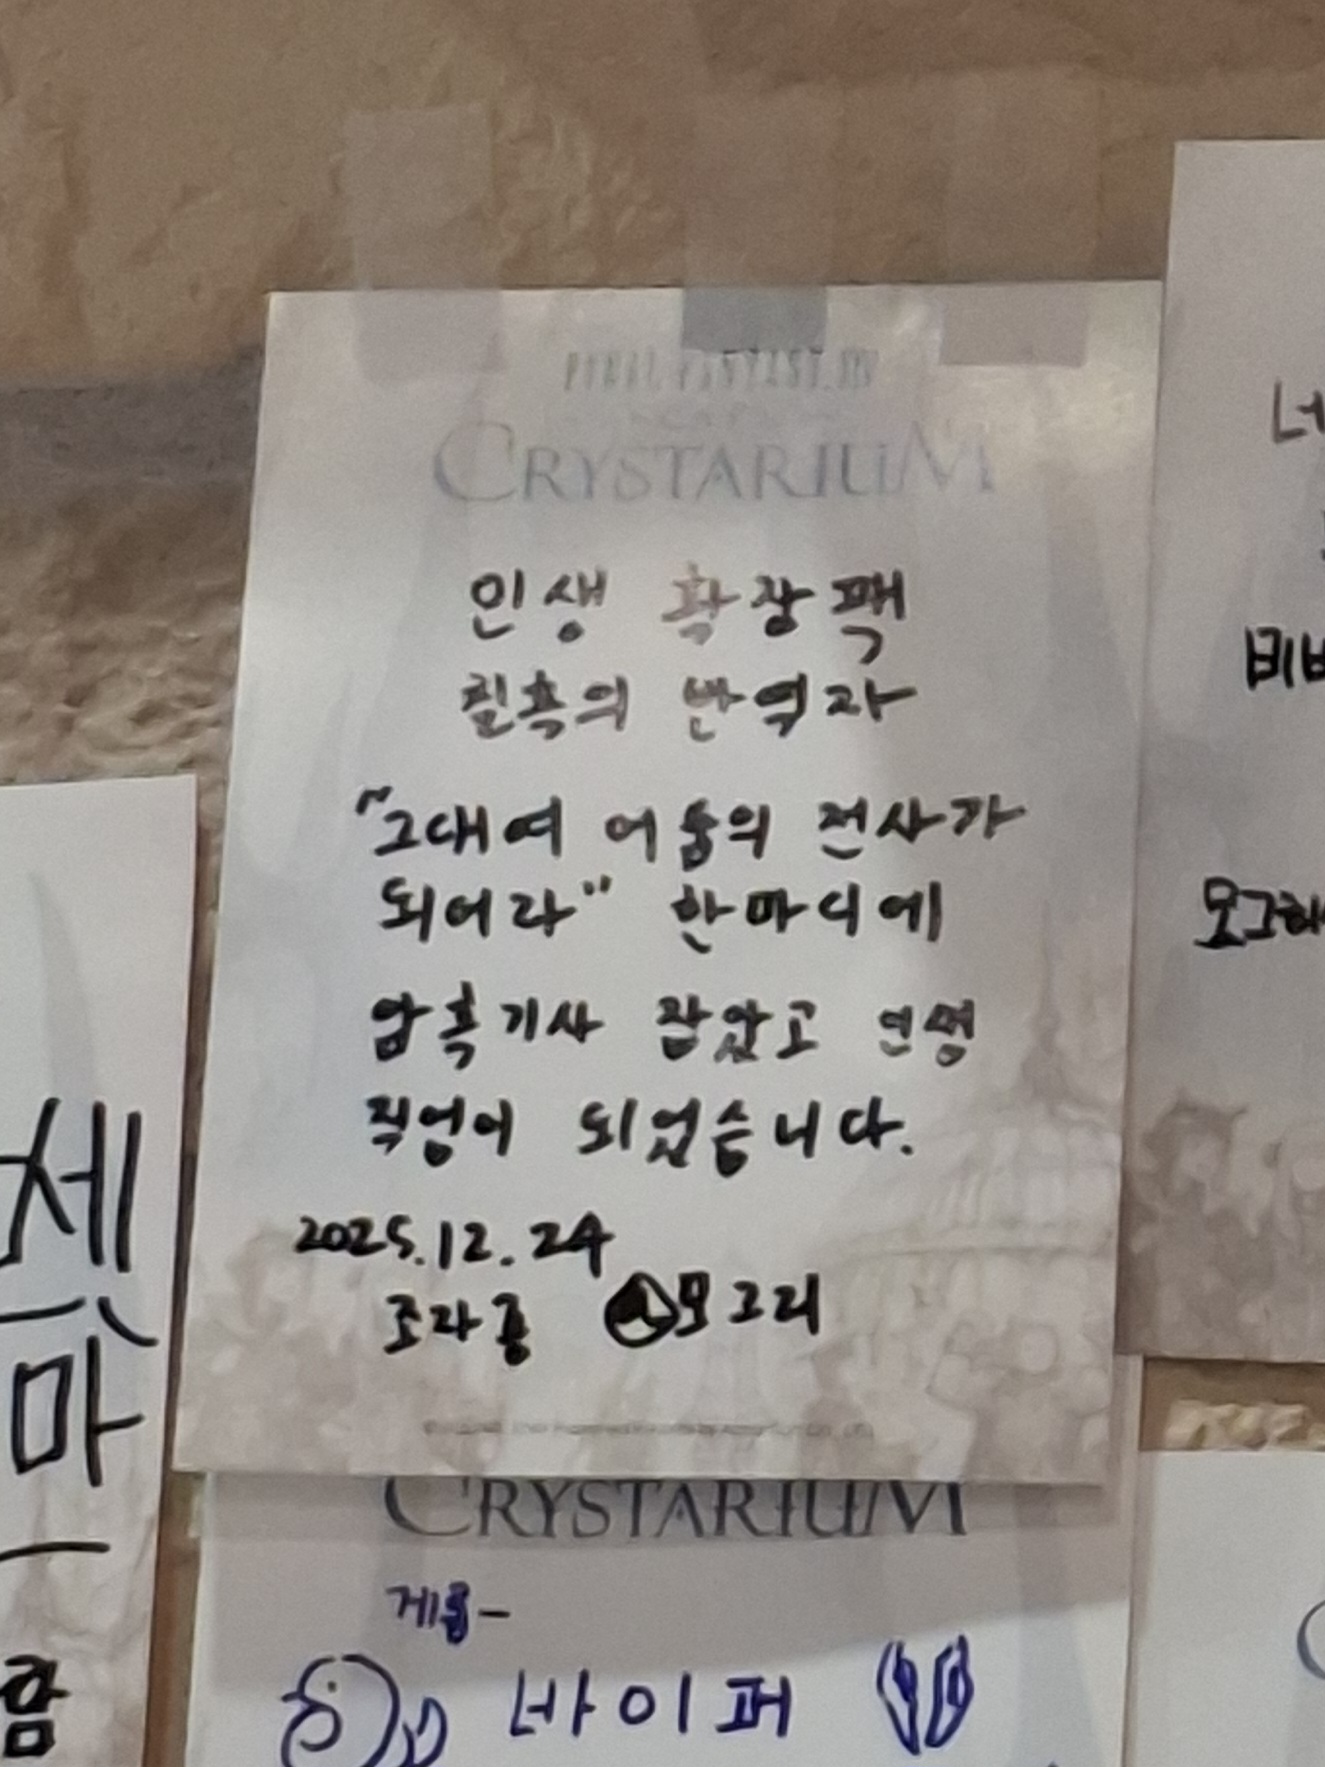 FINAL FANTASY XIV
CRYSTARIUM
인생 확장팩
칠흑의 반역자
"그대여 어둠의 전사가
되어라" 한마디에
암흑기사 잡았고 인생
직업이 되었습니다.
2025.12.24
초라홍 모그리
CRYSTARIUM
게롤-
바이퍼
세
마
함
비
모그리